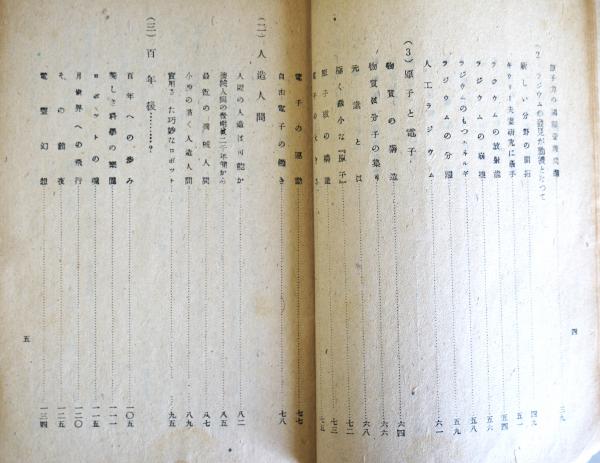 原子力の國際管理問題……三九
(2) ラジウムの發見が動機となつて……四九
新しい分野の開拓……五一
キウリー夫妻研究に着手……五四
ラジウムの放射能……五六
ラジウムの崩壞……五八
ラジウムのもつエネルギ……五九
ラジウムの分離
人工ラジウム……六一
(3) 原子と電子
物質の構造……六四
物質は分子の集り……六八
元素とは……七二
極く微小な『原子』……七三
原子核の構造……七五
電子の大きさ
四
電子の運動……七七
自由電子の働き……七八
(二) 人造人間
人間の人造は可能か……八二
機械人間の發明は二千年前から……八五
最近の機械人間……八七
小説の描く人造人間……八九
實用された巧妙なロボット……九五
(三) 百年後……
百年への歩み……一〇五
美しき科學の樂園……一一一
ロボットの魂……一一五
月世界への飛行……一二〇
その前夜……一二五
電靈幻想……一三四
五